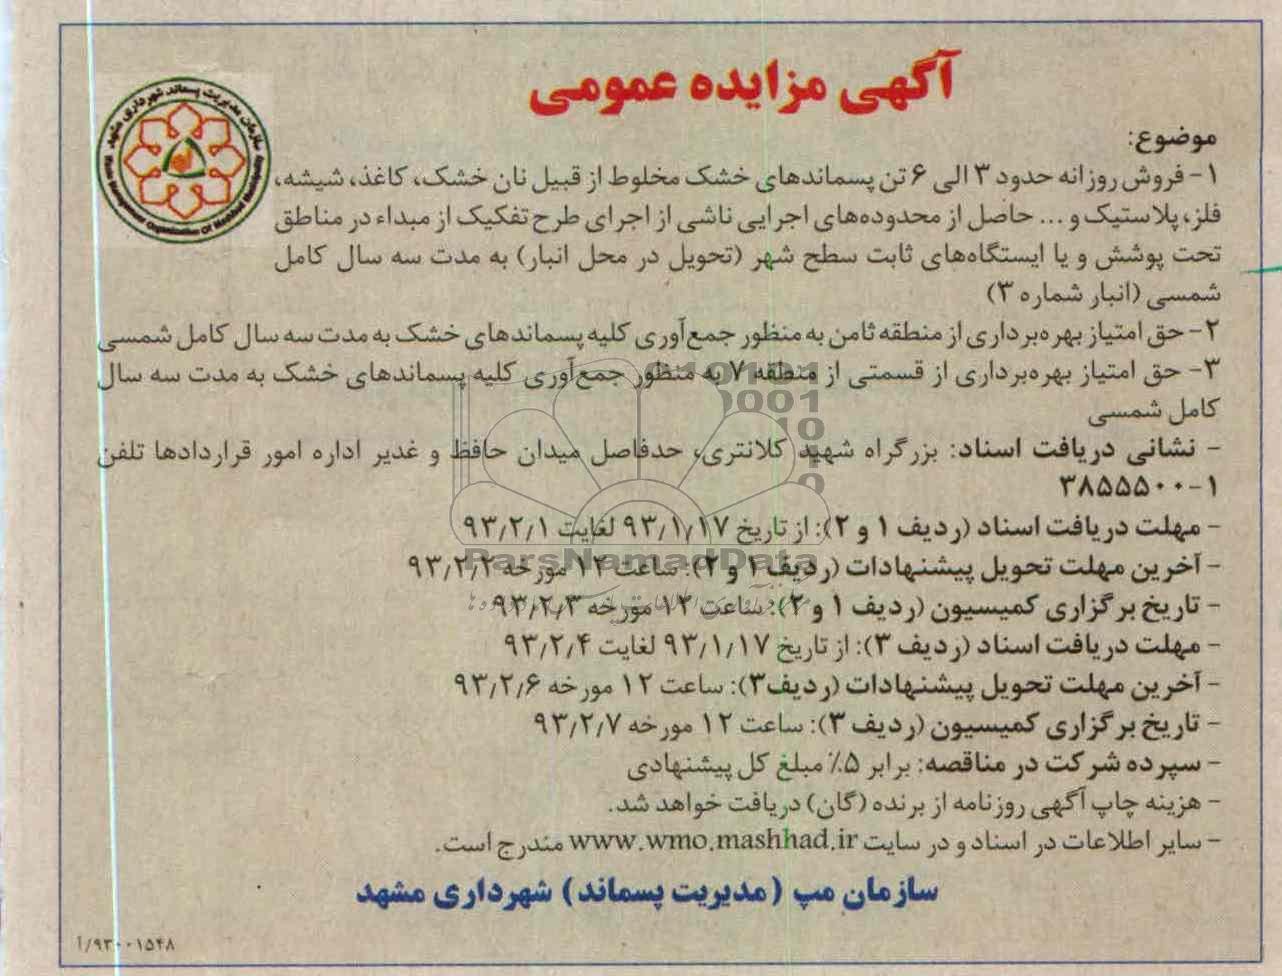 آگهی مزایده عمومی
سازمان مدیریت پسماند شهرداری مشهد
Waste Management Organization Of Mashhad Municipality
موضوع:
۱- فروش روزانه حدود ۳ الی ۶ تن پسماندهای خشک مخلوط از قبیل نان خشک، کاغذ، شیشه،
فلز، پلاستیک و ... حاصل از محدوده‌های اجرایی ناشی از اجرای طرح تفکیک از مبداء در مناطق
تحت پوشش و یا ایستگاه‌های ثابت سطح شهر (تحویل در محل انبار) به مدت سه سال کامل
شمسی (انبار شماره ۳)
۲- حق امتیاز بهره‌برداری از منطقه ثامن به منظور جمع‌آوری کلیه پسماندهای خشک به مدت سه سال کامل شمسی
۳- حق امتیاز بهره‌برداری از قسمتی از منطقه ۷ به منظور جمع‌آوری کلیه پسماندهای خشک به مدت سه سال
کامل شمسی
- نشانی دریافت اسناد: بزرگراه شهید کلانتری، حدفاصل میدان حافظ و غدیر اداره امور قراردادها تلفن
۳۸۵۵۵۰۰-۱
- مهلت دریافت اسناد (ردیف ۱ و ۲): از تاریخ ۹۳/۱/۱۷ لغایت ۹۳/۲/۱
- آخرین مهلت تحویل پیشنهادات (ردیف ۱ و ۲): ساعت ۱۲ مورخه ۹۳/۲/۲
- تاریخ برگزاری کمیسیون (ردیف ۱ و ۲): ساعت ۱۲ مورخه ۹۳/۲/۳
- مهلت دریافت اسناد (ردیف ۳): از تاریخ ۹۳/۱/۱۷ لغایت ۹۳/۲/۴
- آخرین مهلت تحویل پیشنهادات (ردیف۳): ساعت ۱۲ مورخه ۹۳/۲/۶
- تاریخ برگزاری کمیسیون (ردیف ۳): ساعت ۱۲ مورخه ۹۳/۲/۷
- سپرده شرکت در مناقصه: برابر ۵٪ مبلغ کل پیشنهادی
- هزینه چاپ آگهی روزنامه از برنده (گان) دریافت خواهد شد.
- سایر اطلاعات در اسناد و در سایت www.wmo.mashhad.ir مندرج است.
سازمان مپ (مدیریت پسماند) شهرداری مشهد
۹۳۰۰۱۵۴۸/آ
ParsNamadData